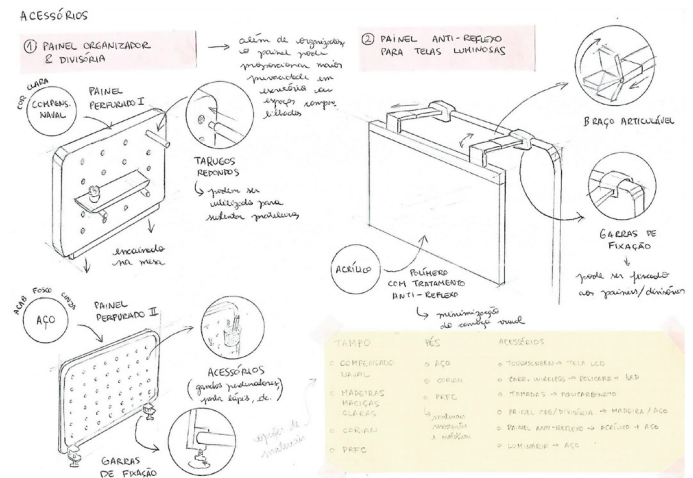 ACESSÓRIOS
① PAINEL ORGANIZADOR
& DIVISÓRIA
→ além de organizador,
o painel pode
proporcionar maior
privacidade em
escritório ou
espaços compar
tilhados
COR CLARA
COMPENS.
NAVAL
PAINEL
PERFURADO I
TARUGOS
REDONDOS
↳ podem ser
utilizado para
sustentar prateleiras
encaixado
na mesa
ACAB. FOSCO CINZA
AÇO
PAINEL
PERFURADO II
ACESSÓRIOS
(ganchos penduradores,
porta lápis, etc.)
GARRAS
DE FIXAÇÃO
② PAINEL ANTI-REFLEXO
PARA TELAS LUMINOSAS
BRAÇO ARTICULÁVEL
GARRAS DE
FIXAÇÃO
pode ser fixado
aos paineis/divisórias
ACRÍLICO
POLÍMERO
COM TRATAMENTO
ANTI-REFLEXO
↳ minimização
do cansaço visual
opções de
materiais
TAMPO
○ COMPENSADO
NAVAL
○ MADEIRAS
MACIÇAS
CLARAS
○ CORIAN
○ PRFC
PÉS
○ AÇO
○ CORIAN
○ PRFC
↳ materiais
resistentes
e estáticos
ACESSÓRIOS
○ TOUCHSCREEN → TELA LCD
○ CARR. WIRELESS → POLICARB. + LED
○ TOMADAS → POLICARBONATO
○ PAINEL ORG/DIVISÓRIA → MADEIRA / AÇO
○ PAINEL ANTI-REFLEXO → ACRÍLICO + AÇO
○ LUMINÁRIA → AÇO